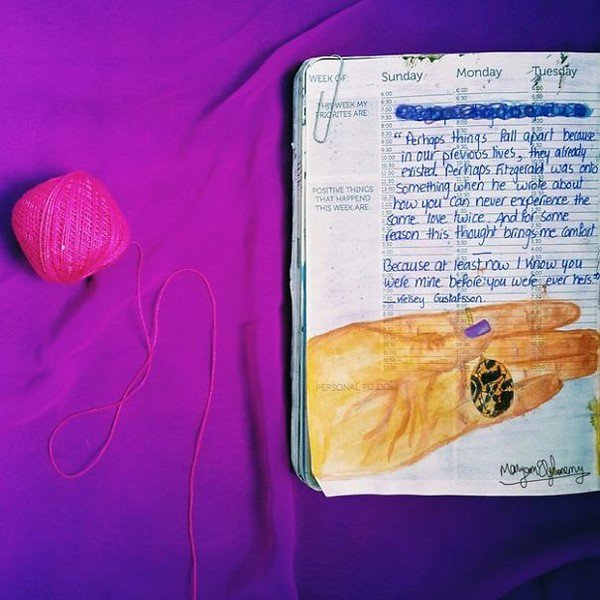 WEEK OF: Sunday Monday Tuesday
THIS WEEK MY
PRIORITES ARE:
"Perhaps things fall apart because
in our previous lives, they already
existed. Perhaps Fitzgerald was onto
something when he wrote about
how you can never experience the
same love twice. And for some
reason this thought brings me comfort
Because at least now I know you
were mine before you were ever hers."
- Kelsey Gustafsson.
POSITIVE THINGS
THAT HAPPEND
THIS WEEK ARE:
PERSONAL TO DO